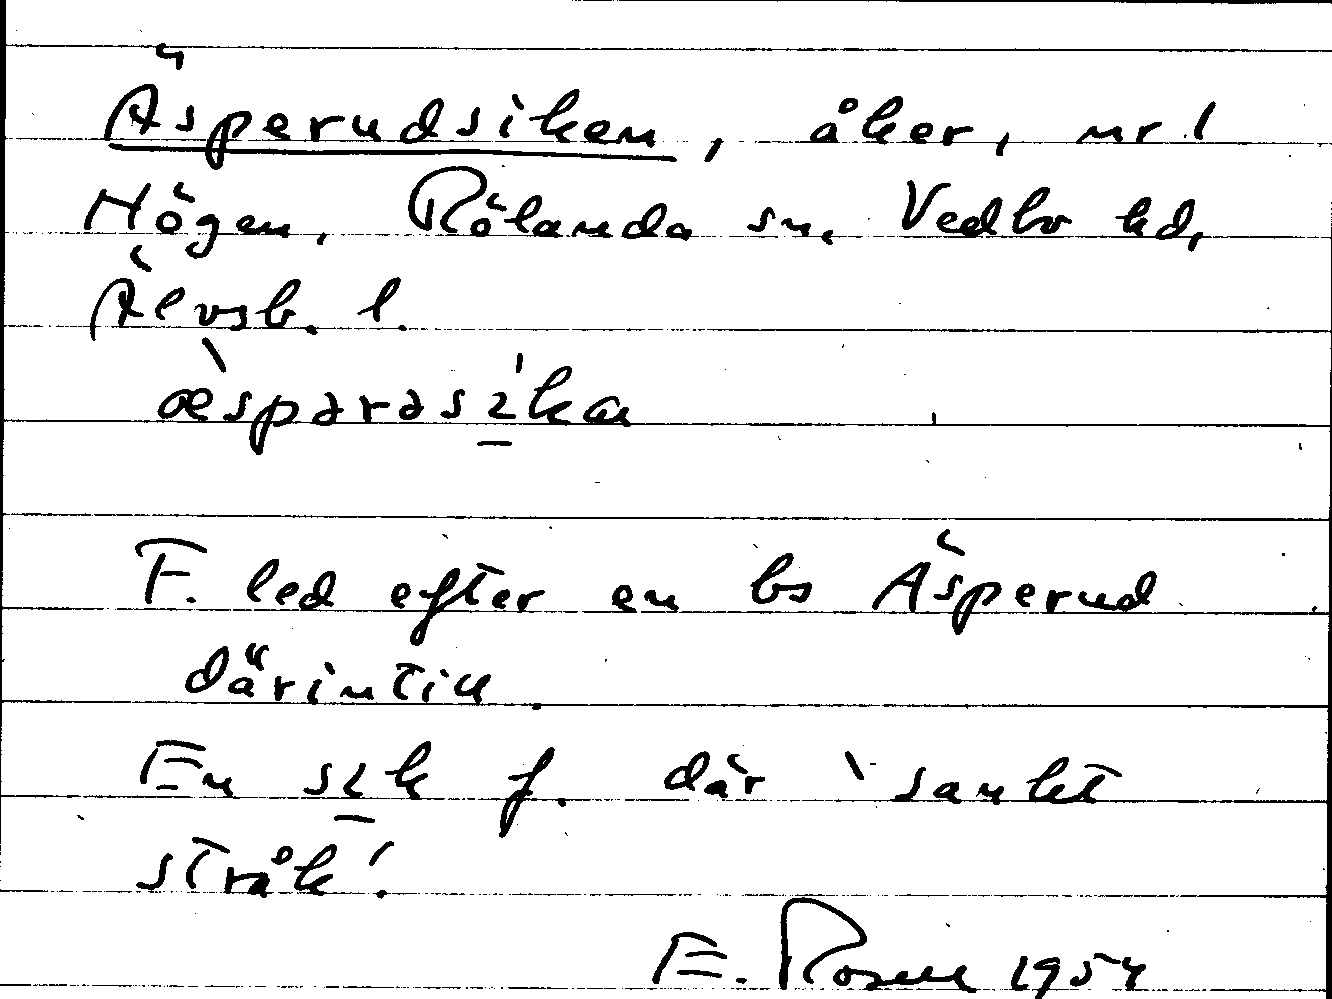 Äsperudsiken, åker, nr 1
Högen, Rölanda sn. Vedbo hd,
Älvsb. l.
F. led efter en bs Äsperud
därintill.
En f. där 'sankt
stråk'.
E. Rosell 1954